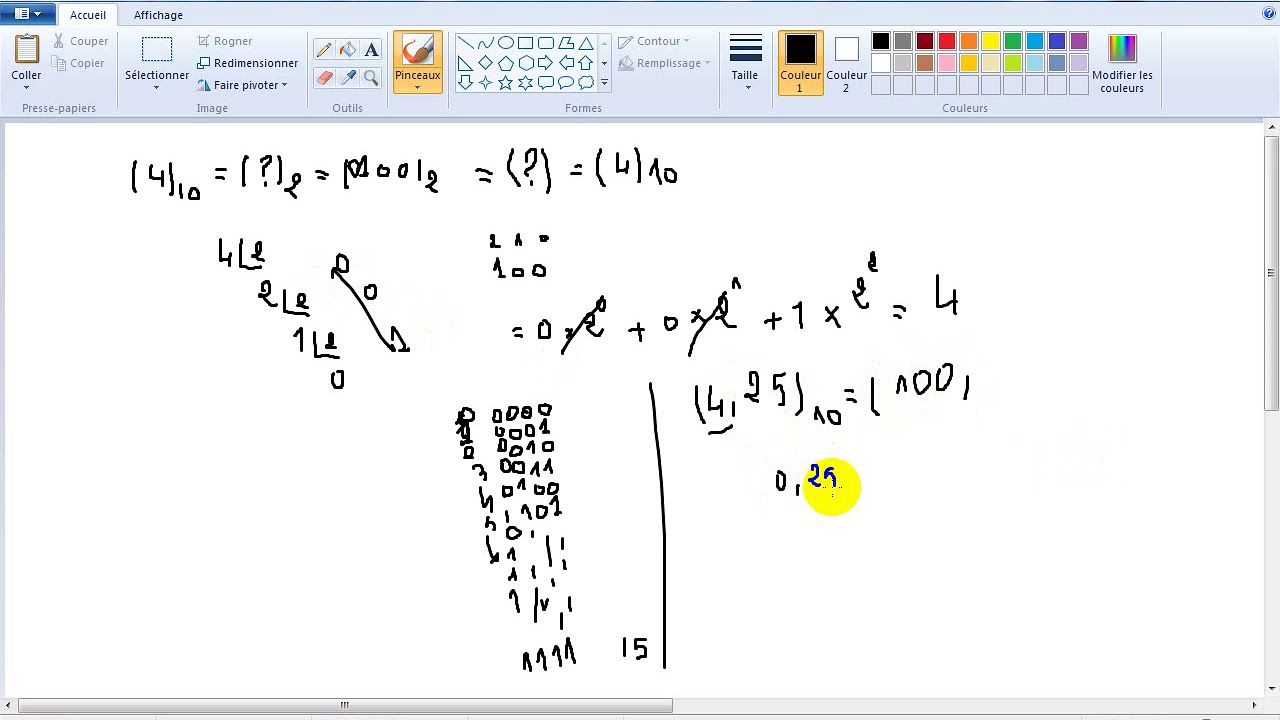 Accueil Affichage
Coller
Couper
Copier
Presse-papiers
Sélectionner
Rogner
Redimensionner
Faire pivoter
Image
A
Outils
Pinceaux
Contour
Remplissage
Formes
Taille
Couleur 1
Couleur 2
Modifier les couleurs
Couleurs
(4)10 = (?)2 = 100)2 = (?) = (4)10
4 2
2 2
1 2
0
0
0
1
2 1 0
1 0 0
= 0 × 2^0 + 0 × 2^1 + 1 × 2^2 = 4
(4,25)10 = (100,
0,25
0 0000
0001
0010
3 0011
4 0100
5 101
1111 15